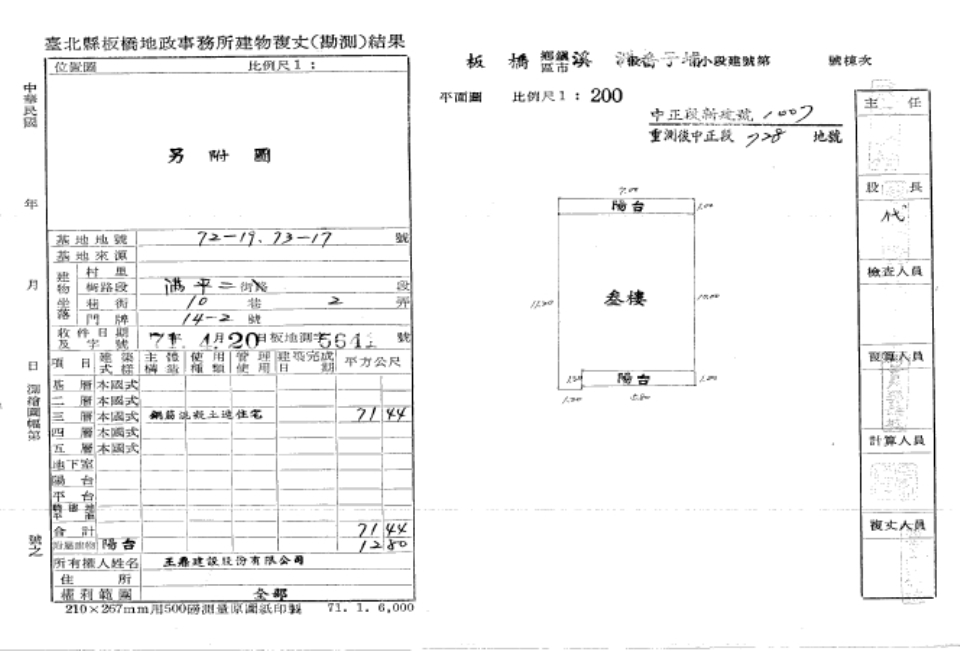 臺北縣板橋地政事務所建物複丈(勘測)結果
位置圖 比例尺1:
另附圖
中華民國 年 月 日 測繪圖幅第 號之
基地地號 72-19、73-17 號
基地來源
建物坐落
村里
街路段 滿平二 街路 段
巷衖 10 巷 2 弄
門牌 14-2 號
收件日期及字號 71年4月20日板地測字 號
項目 建築式樣 主體構造 使用種類 管理使用 建築完成日期 平方公尺
基層 本國式
二層 本國式
三層 本國式 鋼筋混凝土造住宅 71 44
四層 本國式
五層 本國式
地下室
陽台
平台
合計 71 44
附屬建物 陽台 12 80
所有權人姓名 王鼎建設股份有限公司
住所
權利範圍 全部
210×267mm用500磅測量原圖紙印製 71. 1. 6,000
板橋 鄉鎮區市 溪 小段建號第 號棟次
平面圖 比例尺1:200
中正段新建號 1007
重測後中正段 728 地號
7.00
陽台 1.00
叁樓
10.00
陽台 1.00
1.20 5.80
主任
股長
代
檢查人員
複算人員
計算人員
複丈人員